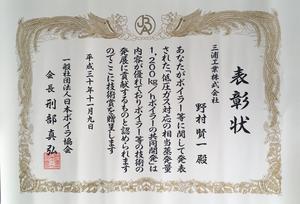 表彰状
三浦工業株式会社
野村賢一殿
あなたがボイラー等に関して発表
された「低圧ガス対応の相当蒸発量
1,250kg/hボイラーの共同開発」は
内容が優れておりボイラー等の技術の
発展に貢献するものと認められます
のでここに技術賞を贈呈します
平成三十年十一月九日
一般社団法人日本ボイラ協会
会長刑部真弘